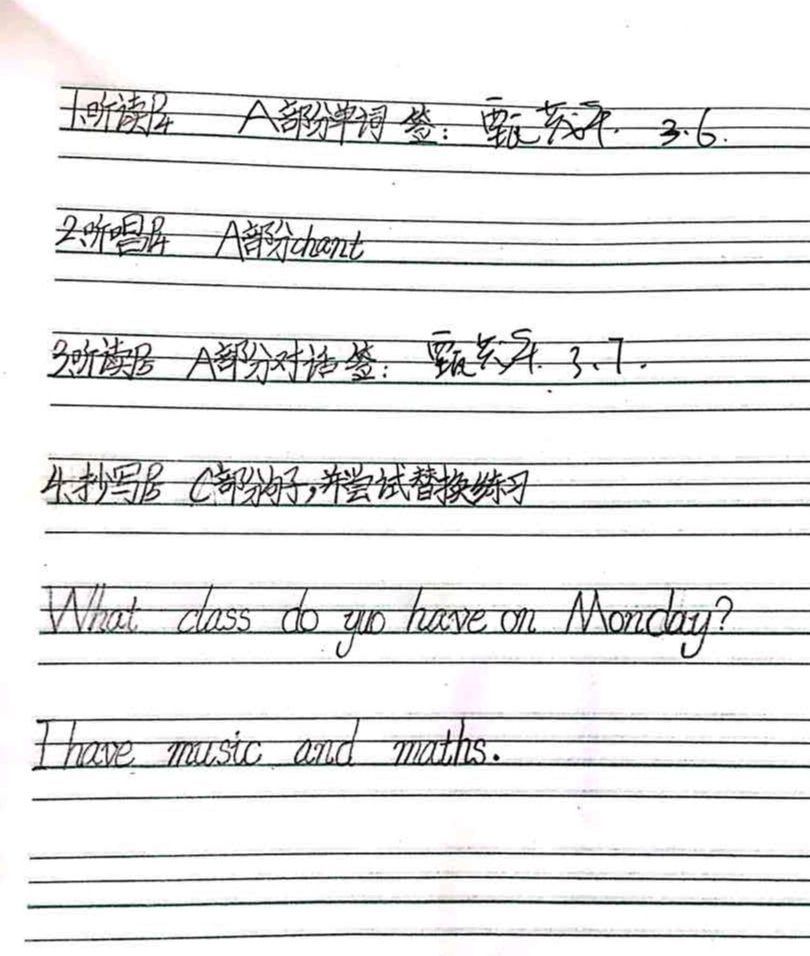 1.听读P4 A部分单词 签: 甄 3.6.
2.听唱P4 A部分chant
3.听读P5 A部分对话 签: 甄 3.7.
4.抄写P5 C部分句子,并尝试替换练习
What class do yuo have on Monday?
I have music and maths.